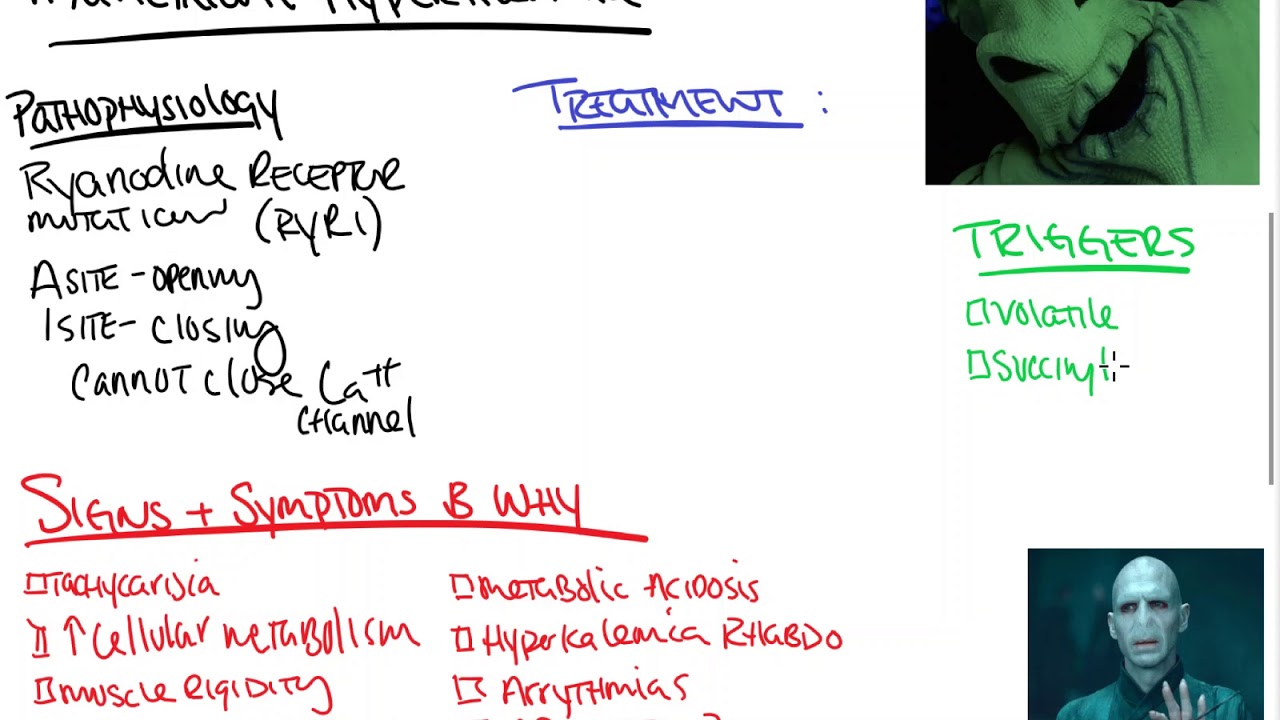 Pathophysiology
Ryanodine Receptor
mutation (RYR1)
A site - opening
I site - closing
Cannot close Ca++
channel
Treatment :
Triggers
Volatile
Succinyl
Signs + Symptoms & Why
Tachycardia
↑ Cellular metabolism
muscle Rigidity
metabolic Acidosis
Hyperkalemia RHABDO
Arrythmias